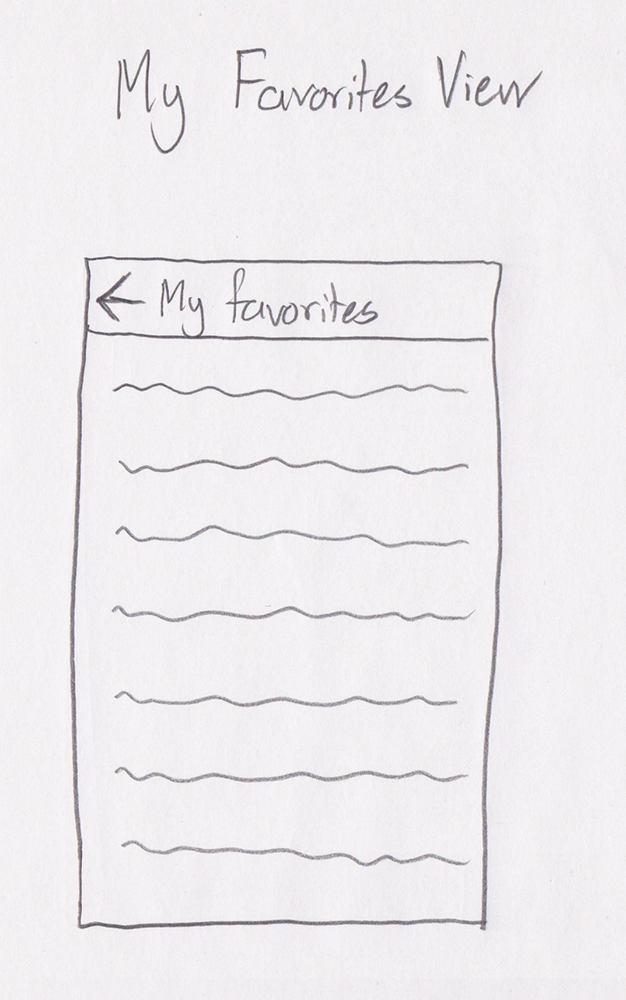 My Favorites View
← My favorites